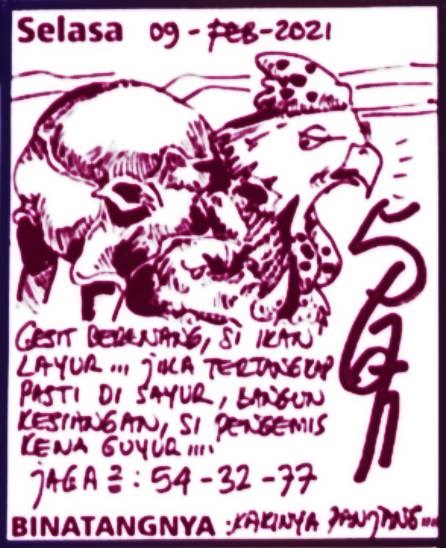 Selasa 09-FEB-2021
GESIT BERENANG, SI IKAN
LAYUR ... JIKA TERTANGKAP
PASTI DI SAYUR, BANGUN
KESIANGAN, SI PENGEMIS
KENA GUYUR ....
JAGA2 : 54-32-77
BINATANGNYA : KAKINYA PANJANG ...